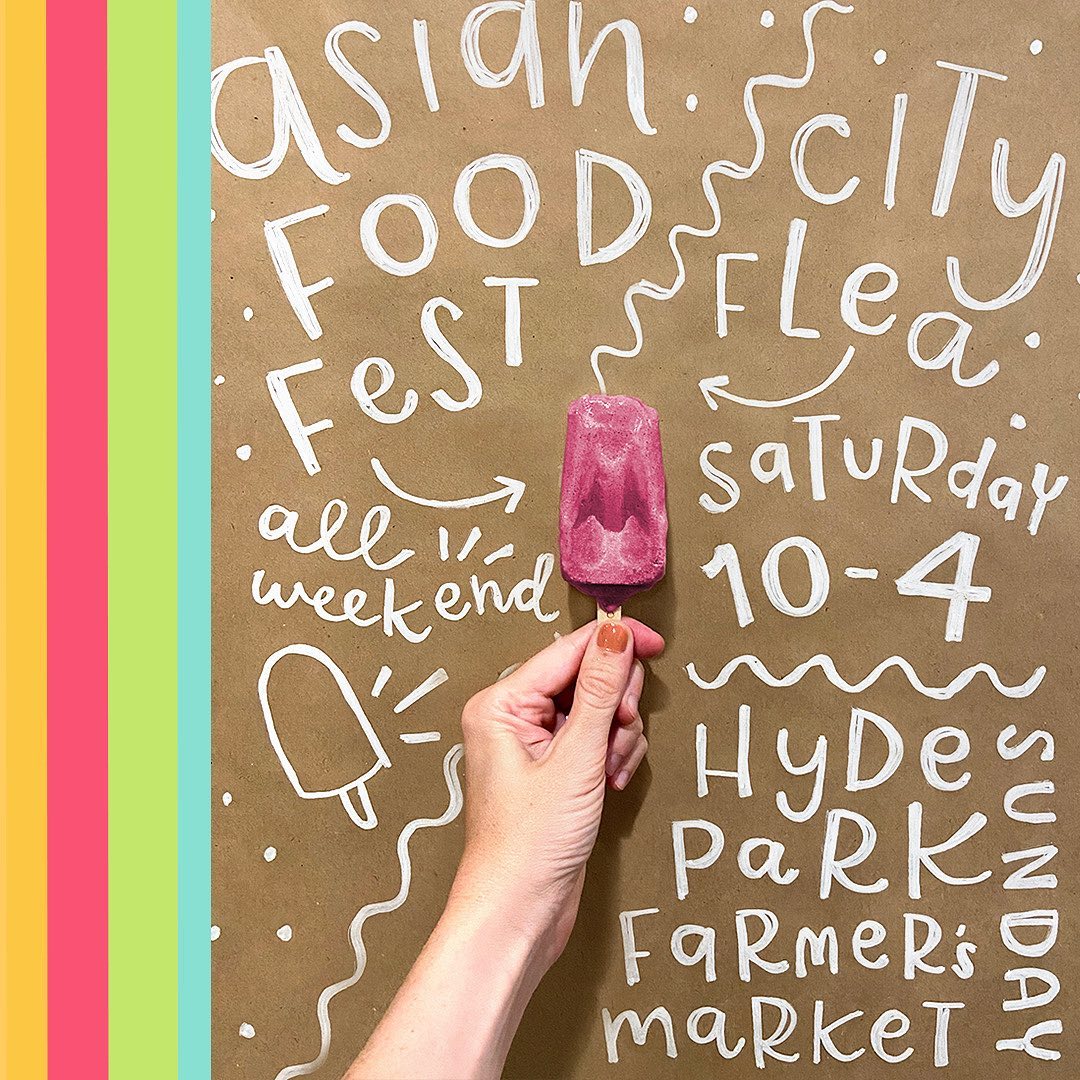 asian
FOOD
FeST
all
weekend
CiTy
FLea
SaTuRday
10-4
HyDe
PaRK
FaRmeR's
maRKeT
SUNDAY